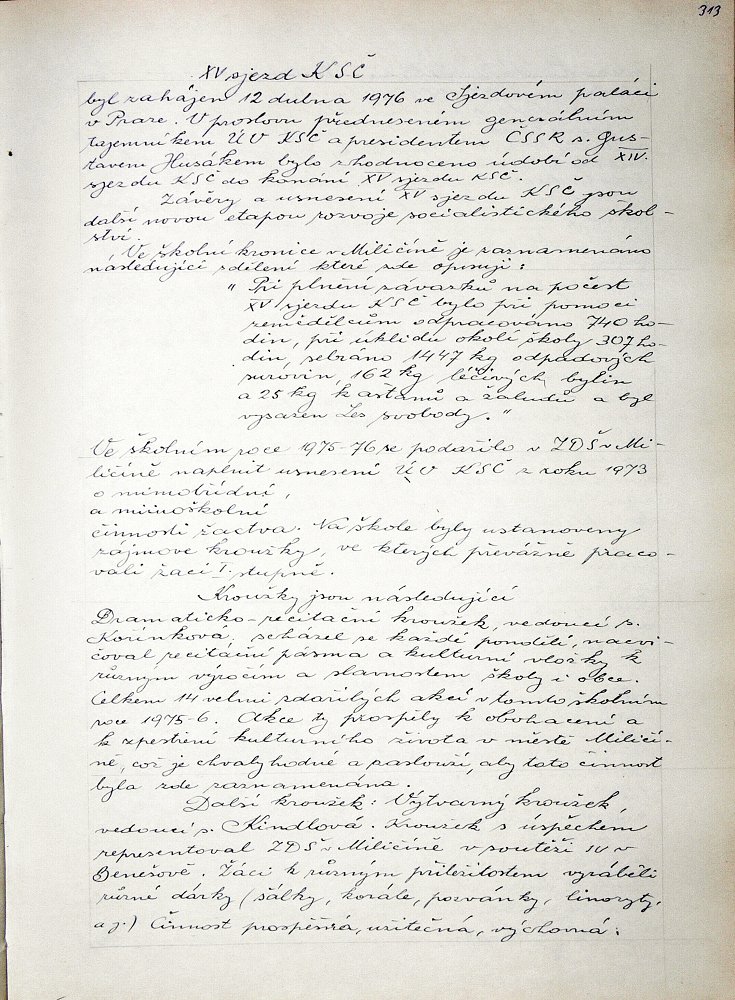 313
XV sjezd KSČ
byl zahájen 12 dubna 1976 ve Sjezdovém paláci
v Praze. V proslovu předneseném generálním
tajemníkem ÚV KSČ a presidentem ČSSR s. Gus-
tavem Husákem bylo zhodnoceno údobí od XIV.
sjezdu KSČ do konání XV sjezdu KSČ.
Závěry a usnesení XV sjezdu KSČ jsou
další novou etapou rozvoje socialistického škol-
ství.
Ve školní kronice v Miličíně je zaznamenáno
následující sdělení které zde opisuji:
" Při plnění závazků na počest
XV sjezdu KSČ bylo při pomoci
zemědělcům odpracováno 740 ho-
din, při úklidu okolí školy 307 ho-
din, sebráno 1447 kg odpadových
surovin, 162 kg léčivých bylin
a 25 kg kaštanů a žaludů a byl
vysazen Les svobody."
Ve školním roce 1975-76 se podařilo v ZDŠ v Mi-
ličíně naplnit usnesení ÚV KSČ z roku 1973
o mimotřídní,
a mimoškolní
činnosti žactva. Na škole byly ustanoveny
zájmové kroužky, ve kterých převážně praco-
vali žáci I. stupně.
Kroužky jsou následující
Dramaticko-recitační kroužek, vedoucí s.
Kořínková, scházel se každé pondělí, nacvi-
čoval recitační pásma a kulturní vložky k
různym výročím a slavnostem školy i obce.
Celkem 14 velmi zdařilých akcí v tomto školním
roce 1975-6. Akce ty prospěly k obohacení a
k zpestření kulturního života v městě Miličí-
ně, což je chvalyhodné a zaslouží, aby tato činnost
byla zde zaznamenána.
Další kroužek: Výtvarný kroužek,
vedoucí s. Kindlová. Kroužek s úspěchem
representoval ZDŠ v Miličíně v soutěži v
Benešově. Žáci k různym příležitostem vyráběli
různé dárky (šálky, korále, pozvánky, linoryty,
a j.) Činnost prospěšná, užitečná, výchovná.